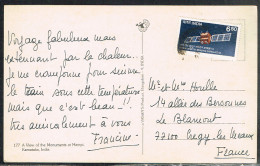 Voyage fabuleux mais
extennant par la chaleur...
je me cramponne pour suivre
le train sous cette température
mais que c'est beau...!!
très amicalement à vous
Francine
177. A View of the Monuments at Hampi,
Karnataka, India
भारत INDIA
6.50
Mr et Mme
14 allée des
Le Blamont
77100 Crégy les Meaux
France